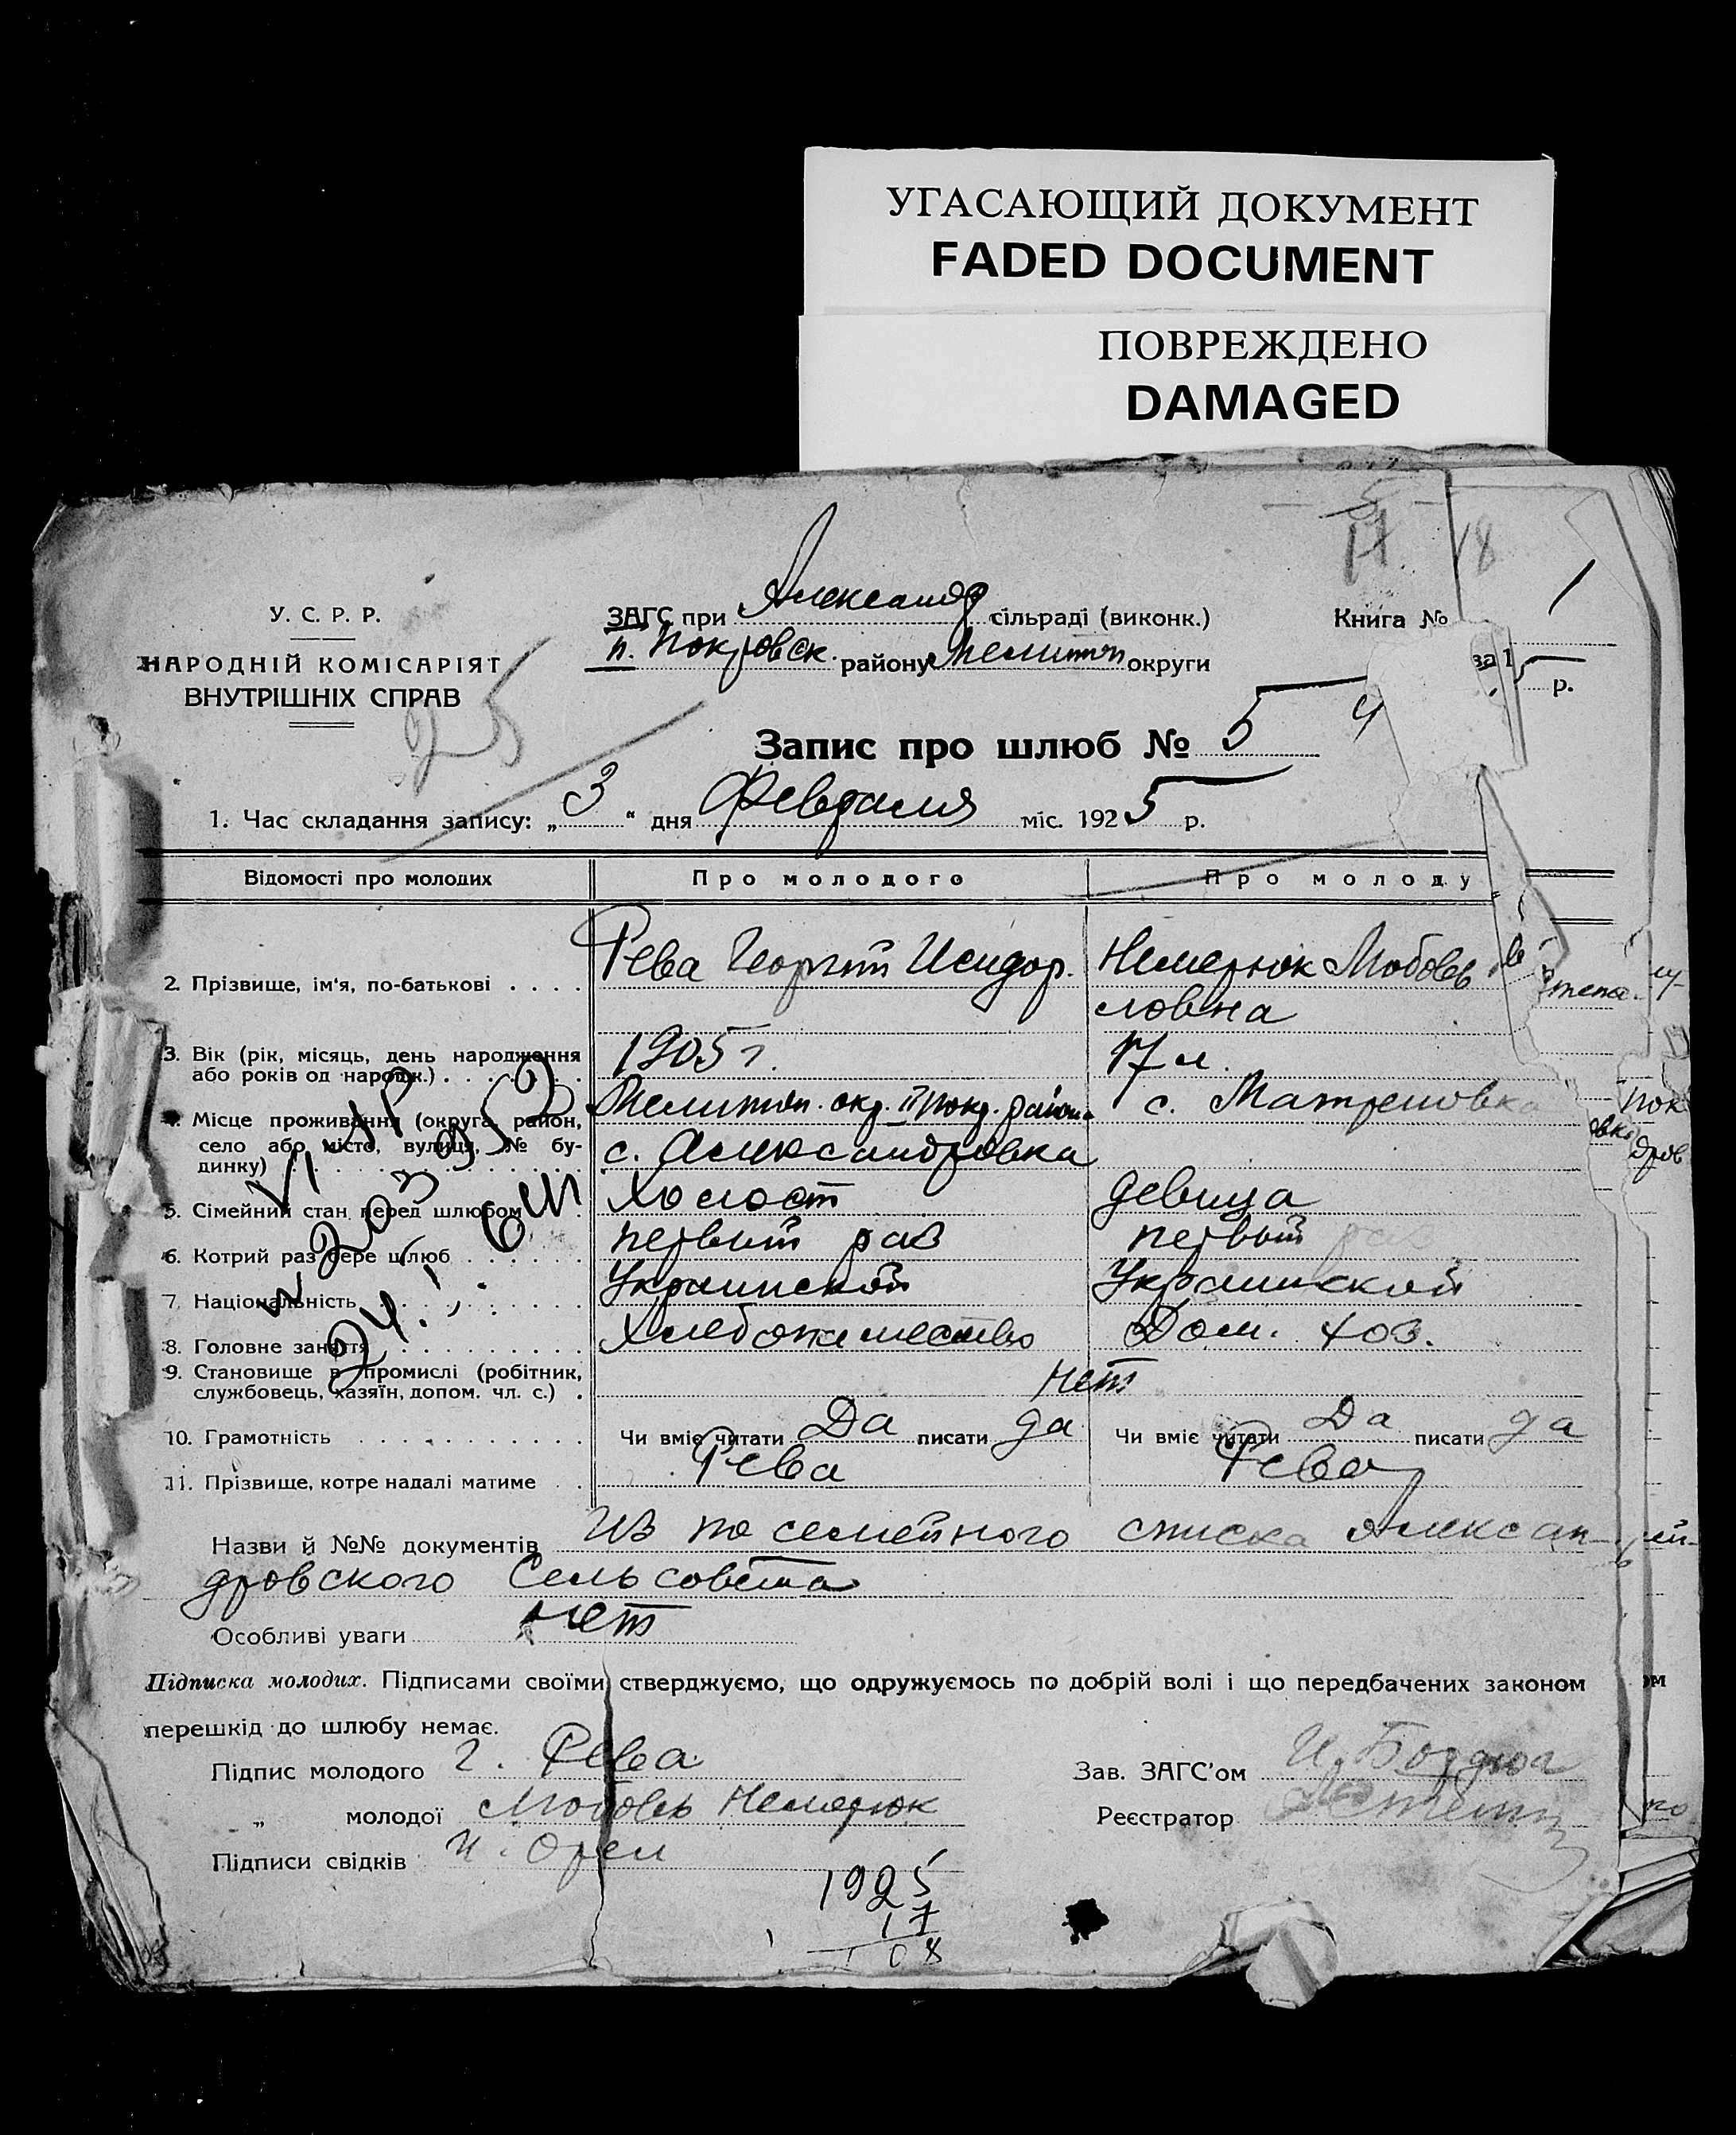 УГАСАЮЩИЙ ДОКУМЕНТ
FADED DOCUMENT
ПОВРЕЖДЕНО
DAMAGED
17 18
У. С. Р. Р.
НАРОДНІЙ КОМІСАРІЯТ
ВНУТРІШНІХ СПРАВ
ЗАГС при Александр сільраді (виконк.)
п. Покровск. району Мелитоп округи
Книга № 1
за 1 5 р.
25
Запис про шлюб № 5
4
1. Час складання запису: „ 3 " дня Февраля міс. 1925 р.
Відомості про молодих Про молодого Про молоду
2. Прізвище, ім'я, по-батькові . . . . Рева Георгий Исидор. Немерюк Любовь
ловна
3. Вік (рік, місяць, день народження або років од народж.) . . . . . . 1905 г. 17 л.
4. Місце проживання (округа, район, село або місто, вулиця, № будинку) Мелитоп. окр. П покр. район с. Матреновка
с. Александровка
5. Сімейний стан перед шлюбом Холост девица
6. Котрий раз бере шлюб первый раз первый раз
7. Національність Украинской Украинской
8. Головне заняття Хлебопашество Дом. хоз.
9. Становище в промислі (робітник, службовець, хазяїн, допом. чл. с.) . нет
10. Грамотність Чи вміє читати Да писати да Чи вміє читати Да писати да
11. Прізвище, котре надалі матиме Рева Рева
Назви й №№ документів Из посемейного списка Алексан-
дровского Сельсовета
Особливі уваги нет
Підписка молодих. Підписами своїми стверджуємо, що одружуємось по добрій волі і що передбачених законом
перешкід до шлюбу немає.
Підпис молодого Г. Рева Зав. ЗАГС'ом
„ молодої Любовь Немерюк Реєстратор
Підписи свідків И. Орел
1925
17
08